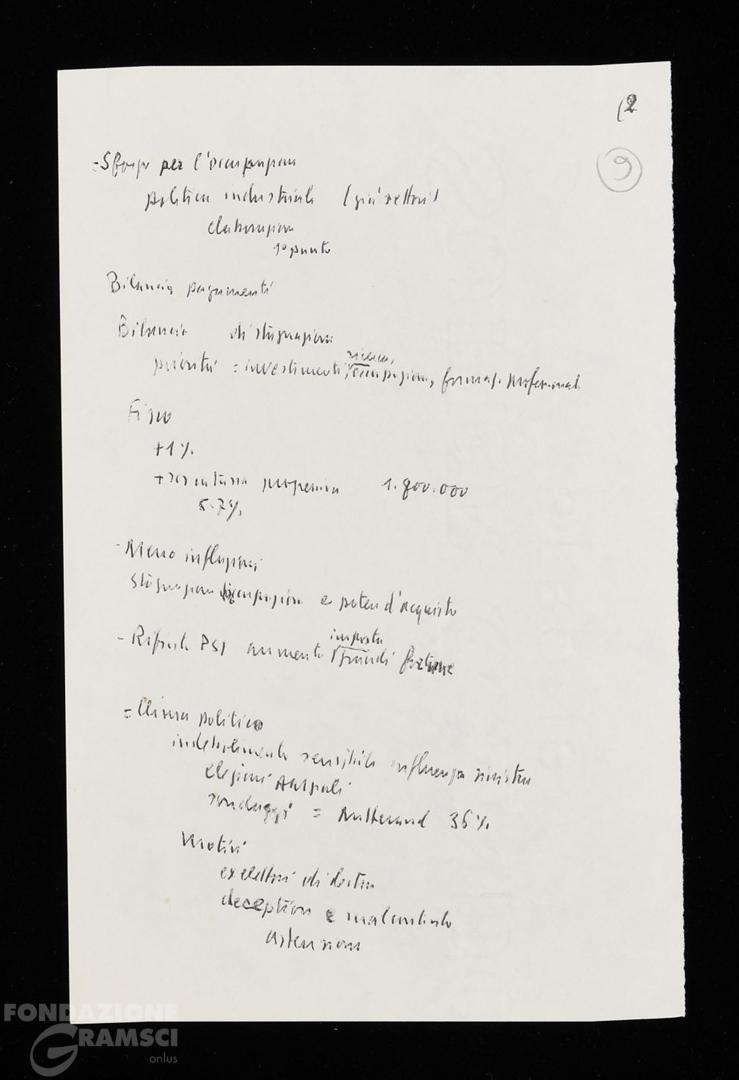 (2
9
= Sforzo per l'occupazione
politica industriale (più settori)
elaborazione
1° punto
Bilancia pagamenti
Bilancio di stagnazione
priorità = investimenti, ricerca, occupazione, formaz. professionale
Fisco
+1%
+ pressione 1.800.000
5.7%
- Meno inflazione
stagnazione occupazione e potere d'acquisto
- Rifiuto PSI aumento imposta grandi fortune
= Clima politico
indebolimento sensibile influenza sinistra
elezioni parziali
sondaggi = Mitterrand 36%
Motivi
ex elettori di destra
deception e malcontento
astensione
FONDAZIONE
GRAMSCI
onlus